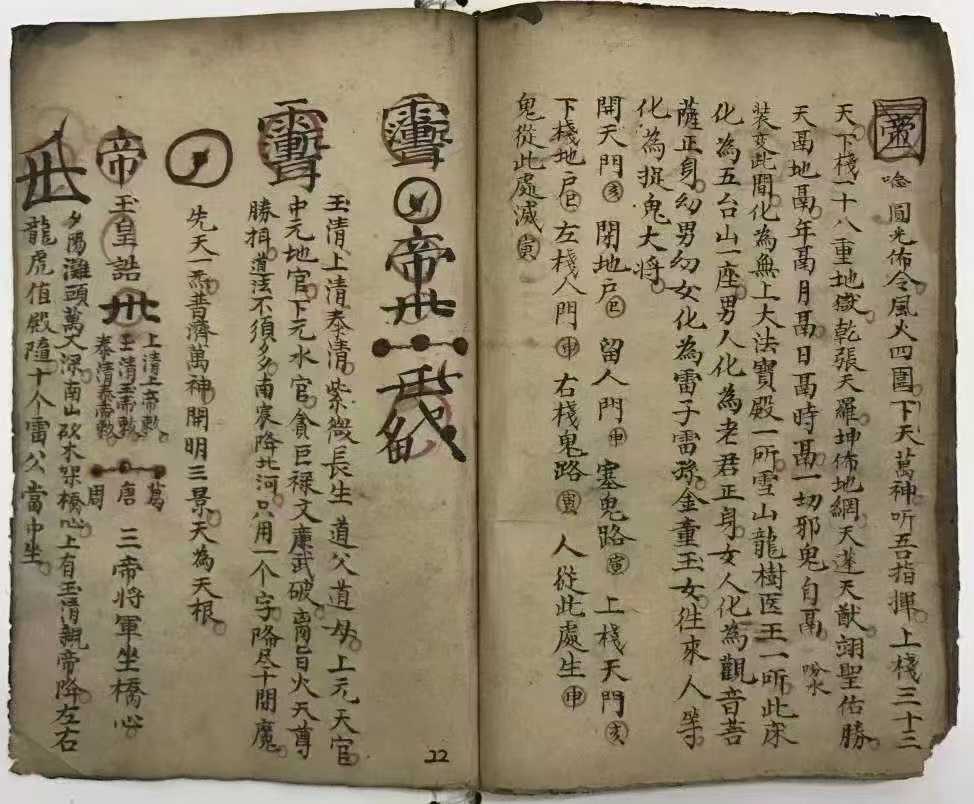 唸 圓光佈令風火四圍下天萬神听吾指揮上棧三十三
天下棧一十八重地獄乾張天羅坤佈地網天蓬天猷翊聖佑勝
天鬲地鬲年鬲月鬲日鬲時鬲一切邪鬼自鬲 吩水
装变此間化為無上大法寶殿一所雪山龍樹医王一所此床
化為五台山一座男人化為老君正身女人化為觀音菩
薩正身幼男幼女化為雷子雷孫金童玉女往來人等
化為捉鬼大将
開天門亥 閉地戶巳 留人門申 塞鬼路寅 上棧天門亥
下棧地戶巳 左棧人門申 右棧鬼路寅 人從此處生申
鬼從此處滅寅
帝
玉清上清泰清紫微長生道父道母上元天官
中元地官下元水官貪巨禄文廉武破 旨火天尊
勝揖道法不須多南宸降北河只用一个字降尽十閒魔
先天一炁普濟萬神開明三景天為天根
帝 玉皇誥
上清上帝敕
玉清玉帝敕
泰清泰帝敕
萬
唐
周
三帝将軍坐橋心
夕陽灘頭萬丈深南山砍木架橋心上有玉清親帝降左右
龍虎值殿隨十个雷公當中坐
22